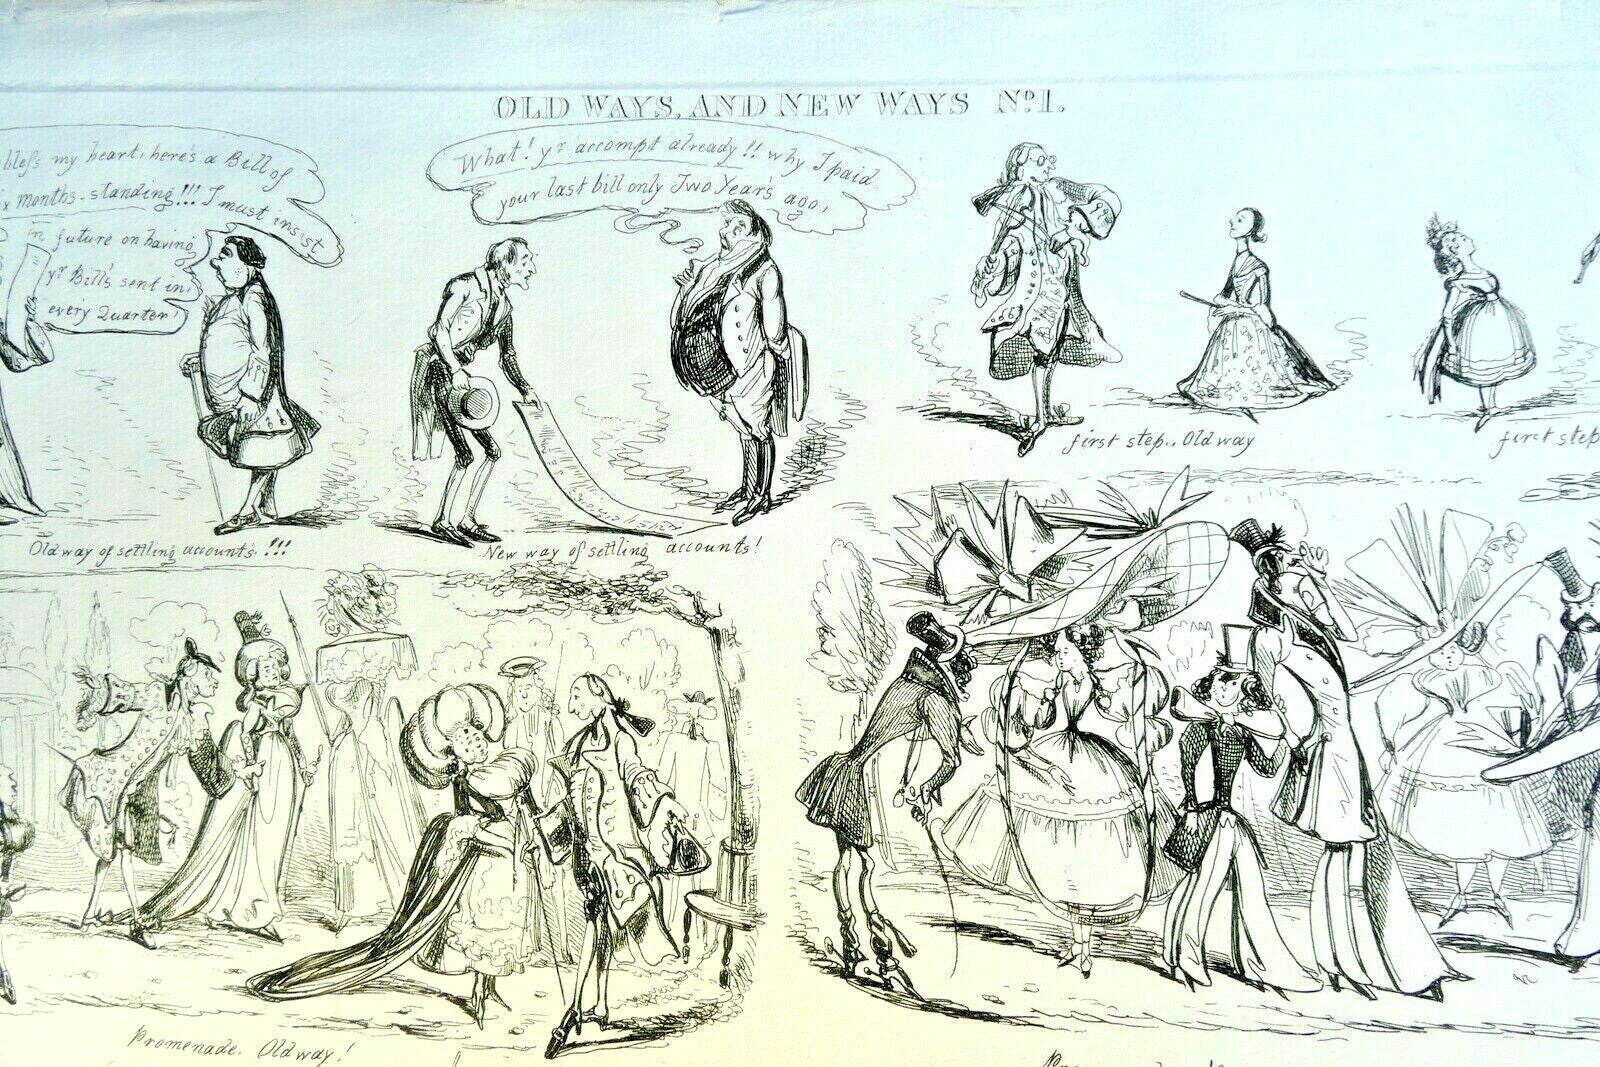 OLD WAYS, AND NEW WAYS No. 1.
bless my heart, here's a Bill of
months-standing!!! I must insist
in future on having
yr. Bill's sent in,
every Quarter!
What! yr. accompt already!! why I paid
your last bill only Two Year's ago,
Old way of settling accounts!!!
New way of settling accounts!
first step., Old way
first step
Promenade. Old way!